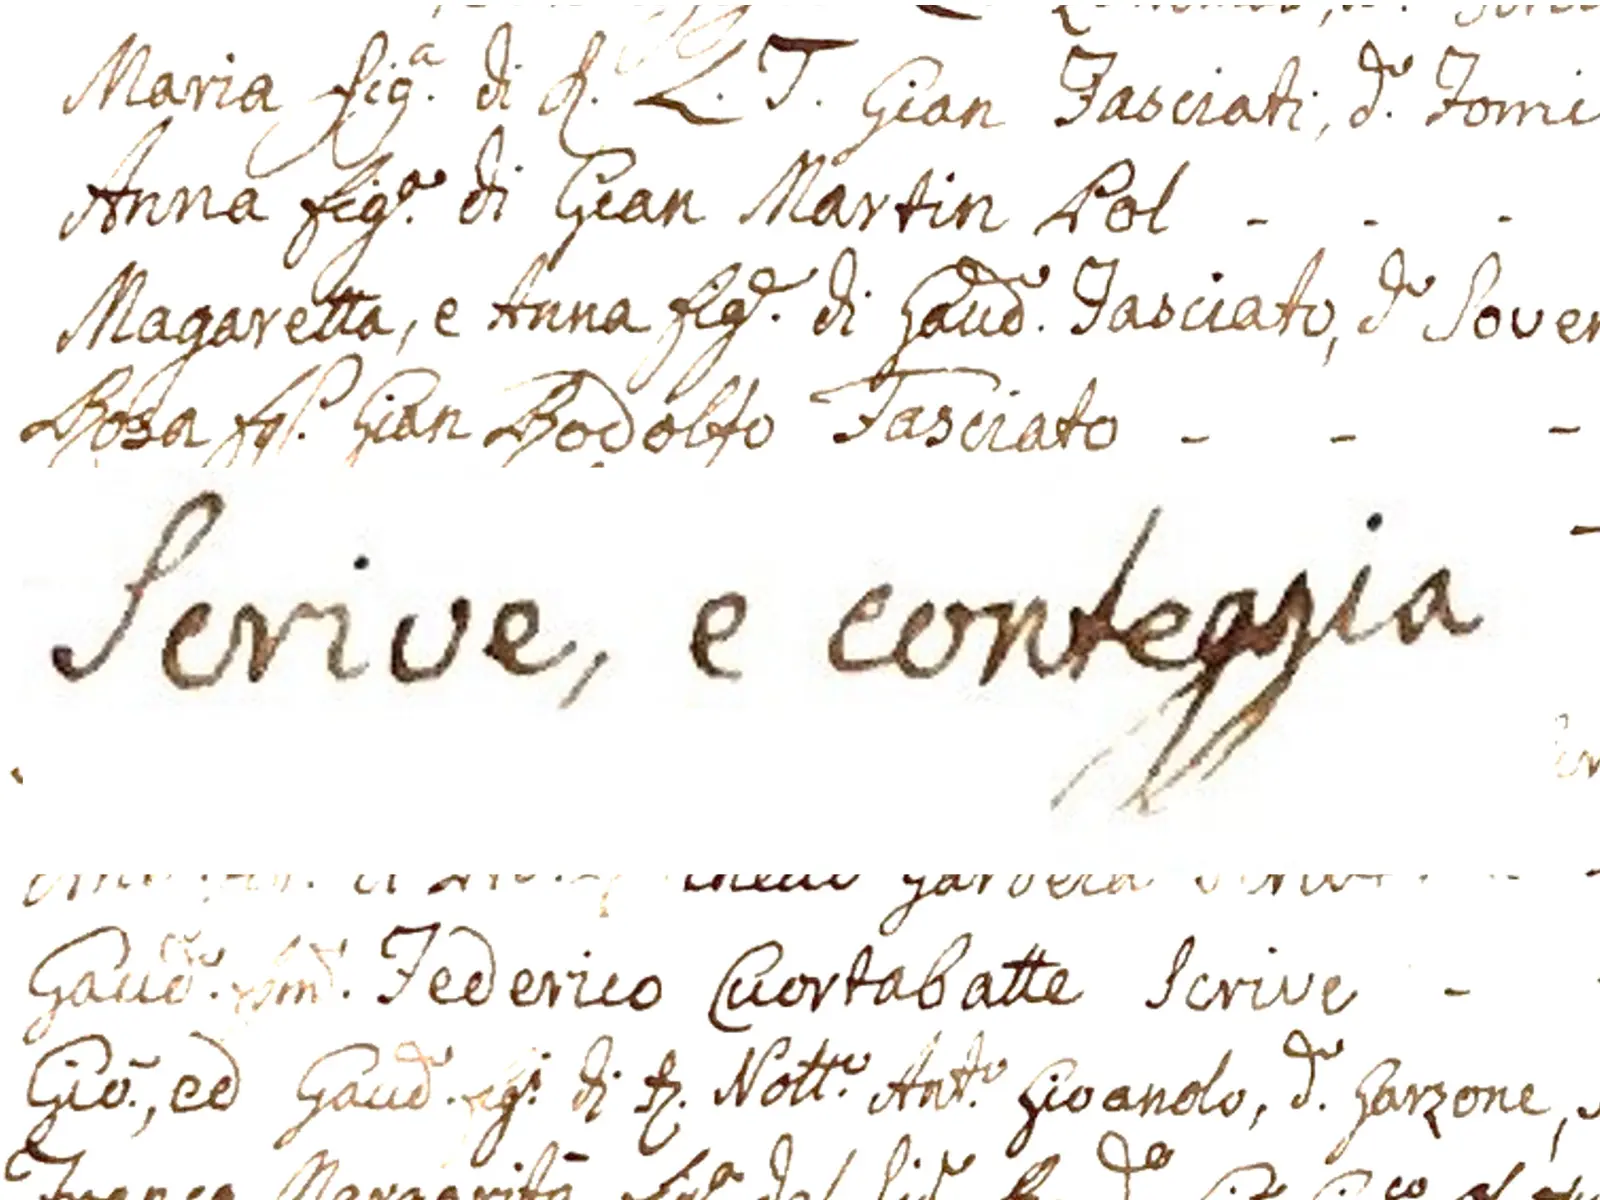 Maria fig.ª di h. L. T. Gian Fasciati, d.º Tomi
Anna fig.ª di Gian Martin Pol - - -
Magaretta, e Anna fig.ª di Gaud.º Fasciato, d.º Sover
Rosa fgl.ª Gian Rodolfo Fasciato - - -
Scrive, e conteggia
Garbera
Gaud.º Federico Cuortabatte Scrive -
Gio., ed Gaud.º fig.i di h. Nott.º Ant.º Gioanolo, d.º Garzone,
Margarita